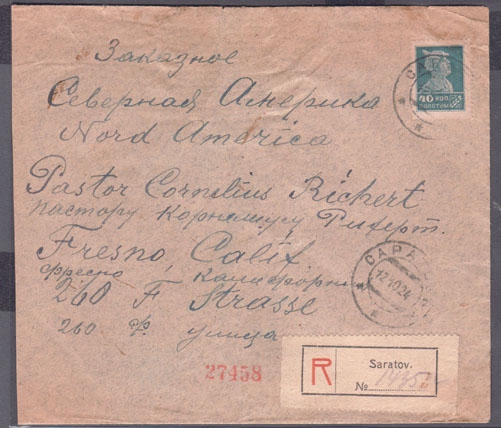 Заказное
Северная Америка
Nord America
Pastor Cornelius Richert
пастору Корнелиусу Рихерт.
Fresno, Calif
Фресно, Калифорния
260 F Strasse
260 Ф улица
40 КОП.
ЗОЛОТОМ
САРА
12.10.24
27458
R
Saratov.
№